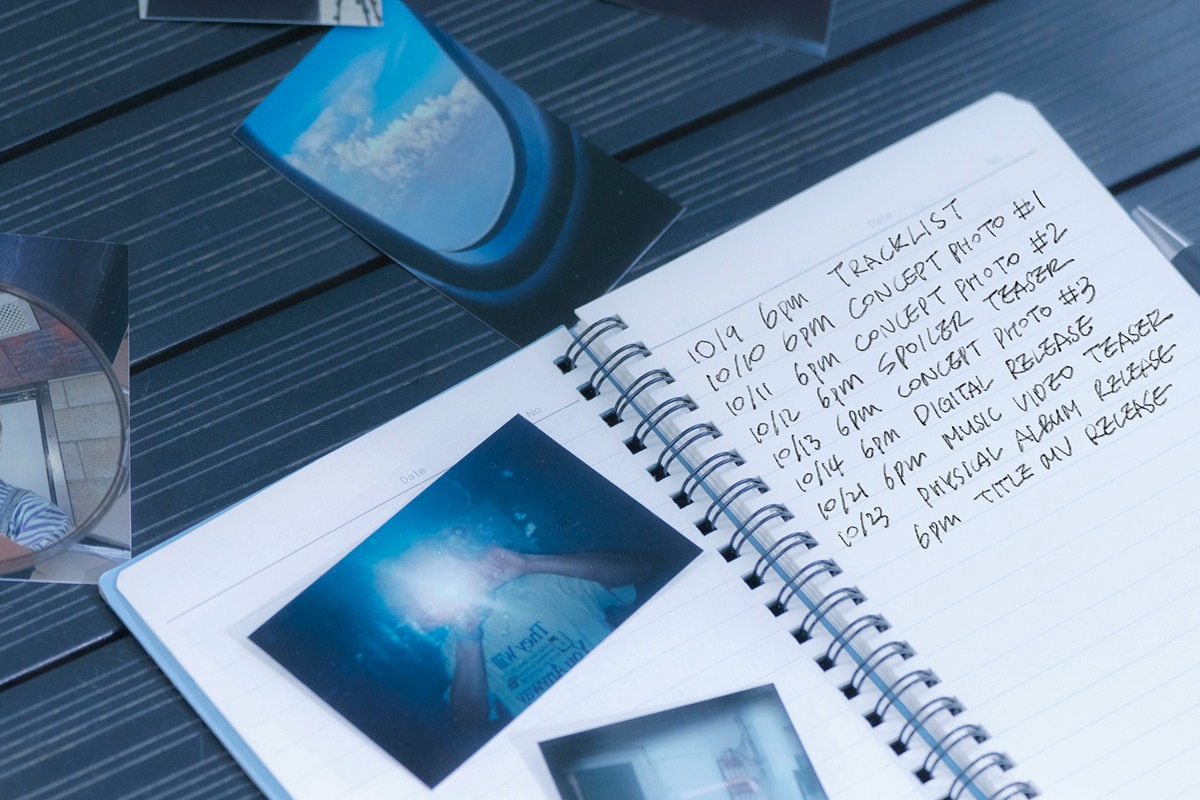 No
Date
They Will
You Anyway
No
Date
10/9 6pm TRACKLIST
10/10 6pm CONCEPT PHOTO #1
10/11 6pm CONCEPT PHOTO #2
10/12 6pm SPOILER TEASER
10/13 6pm CONCEPT PHOTO #3
10/14 6pm DIGITAL RELEASE
10/21 6pm MUSIC VIDEO TEASER
10/23 PHYSICAL ALBUM RELEASE
6pm TITLE MV RELEASE